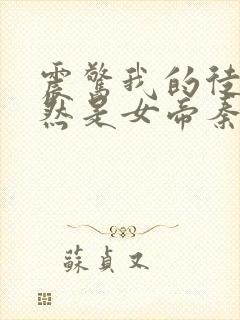 震驚我的徒
然是女帝秦
蘇貞又